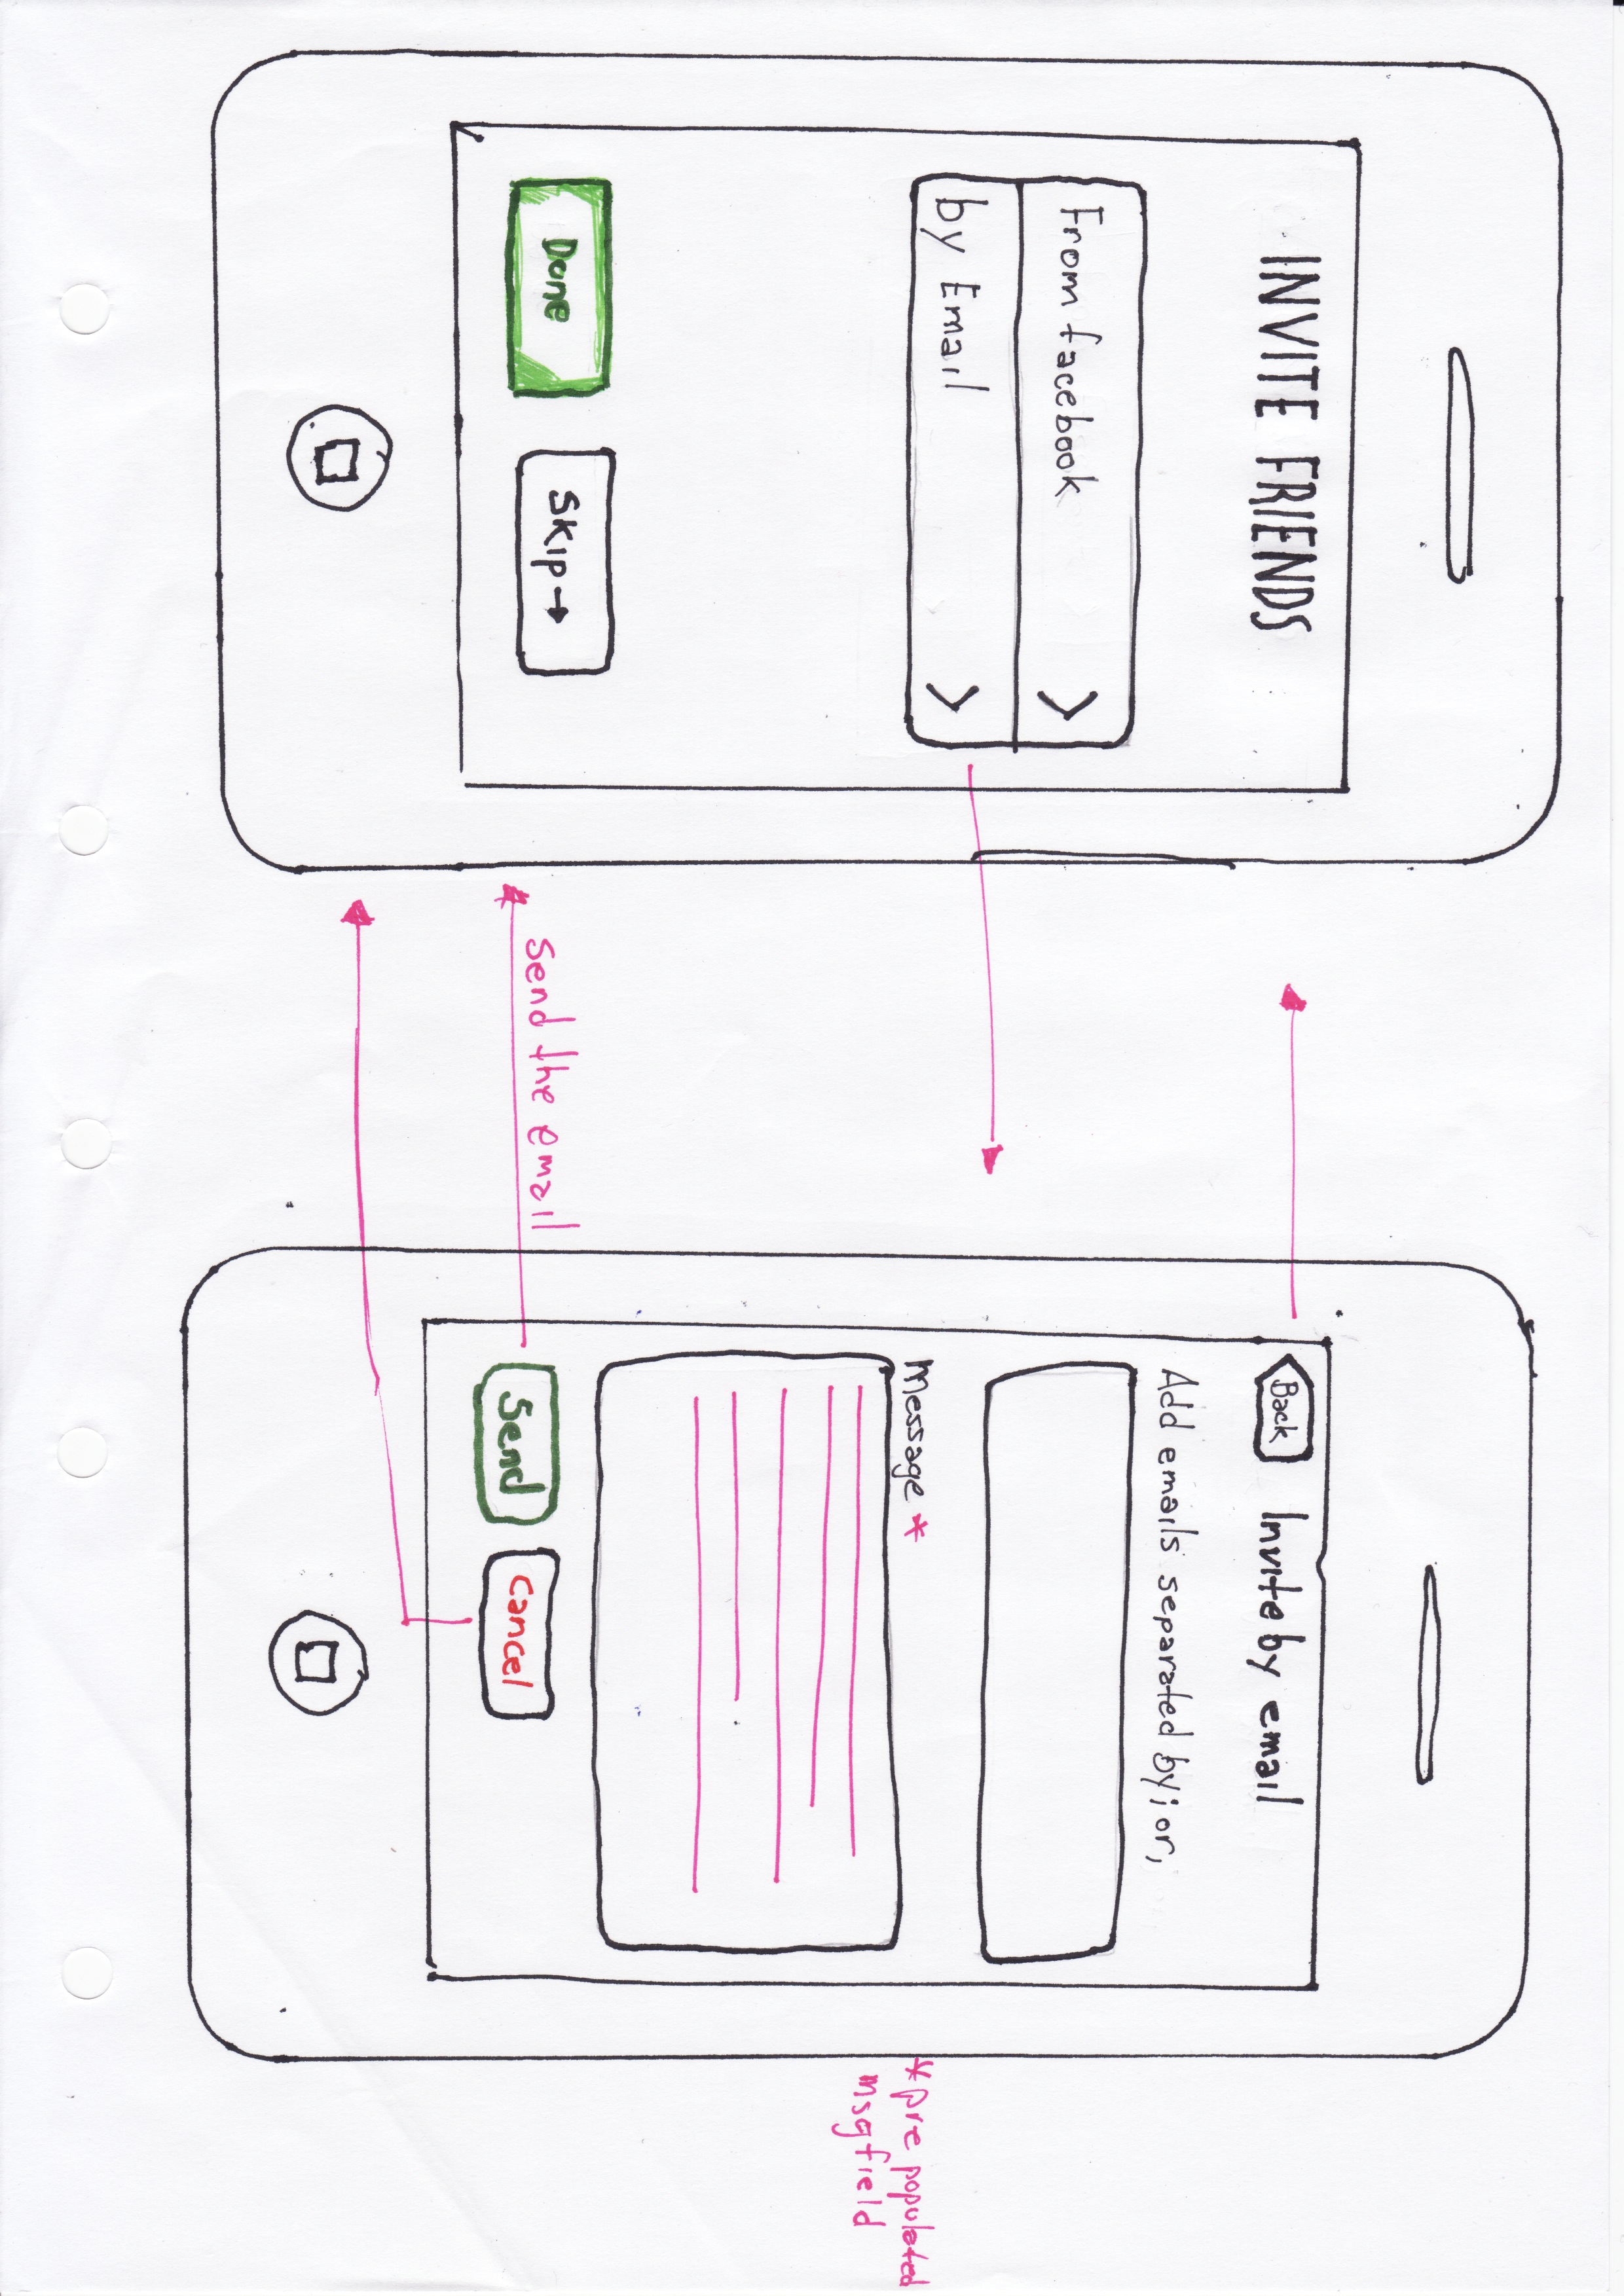 INVITE FRIENDS
From facebook
by Email
Done
Skip →
Send the email
Back
Invite by email
Add emails separated by ; or ,
Message *
Send
Cancel
* pre populated
msg field